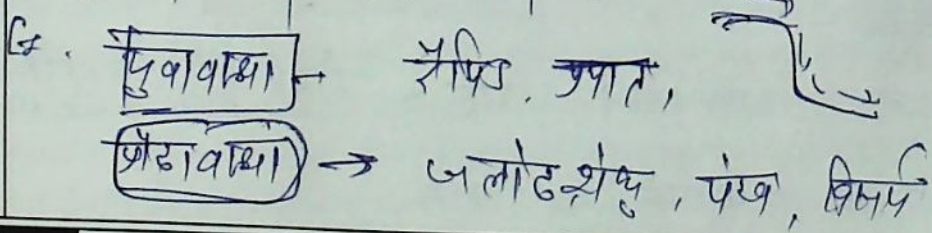 युवावस्था → रैपिड, प्रपात,
प्रौढावस्था → जलोढ शंकु, पंख, विसर्प